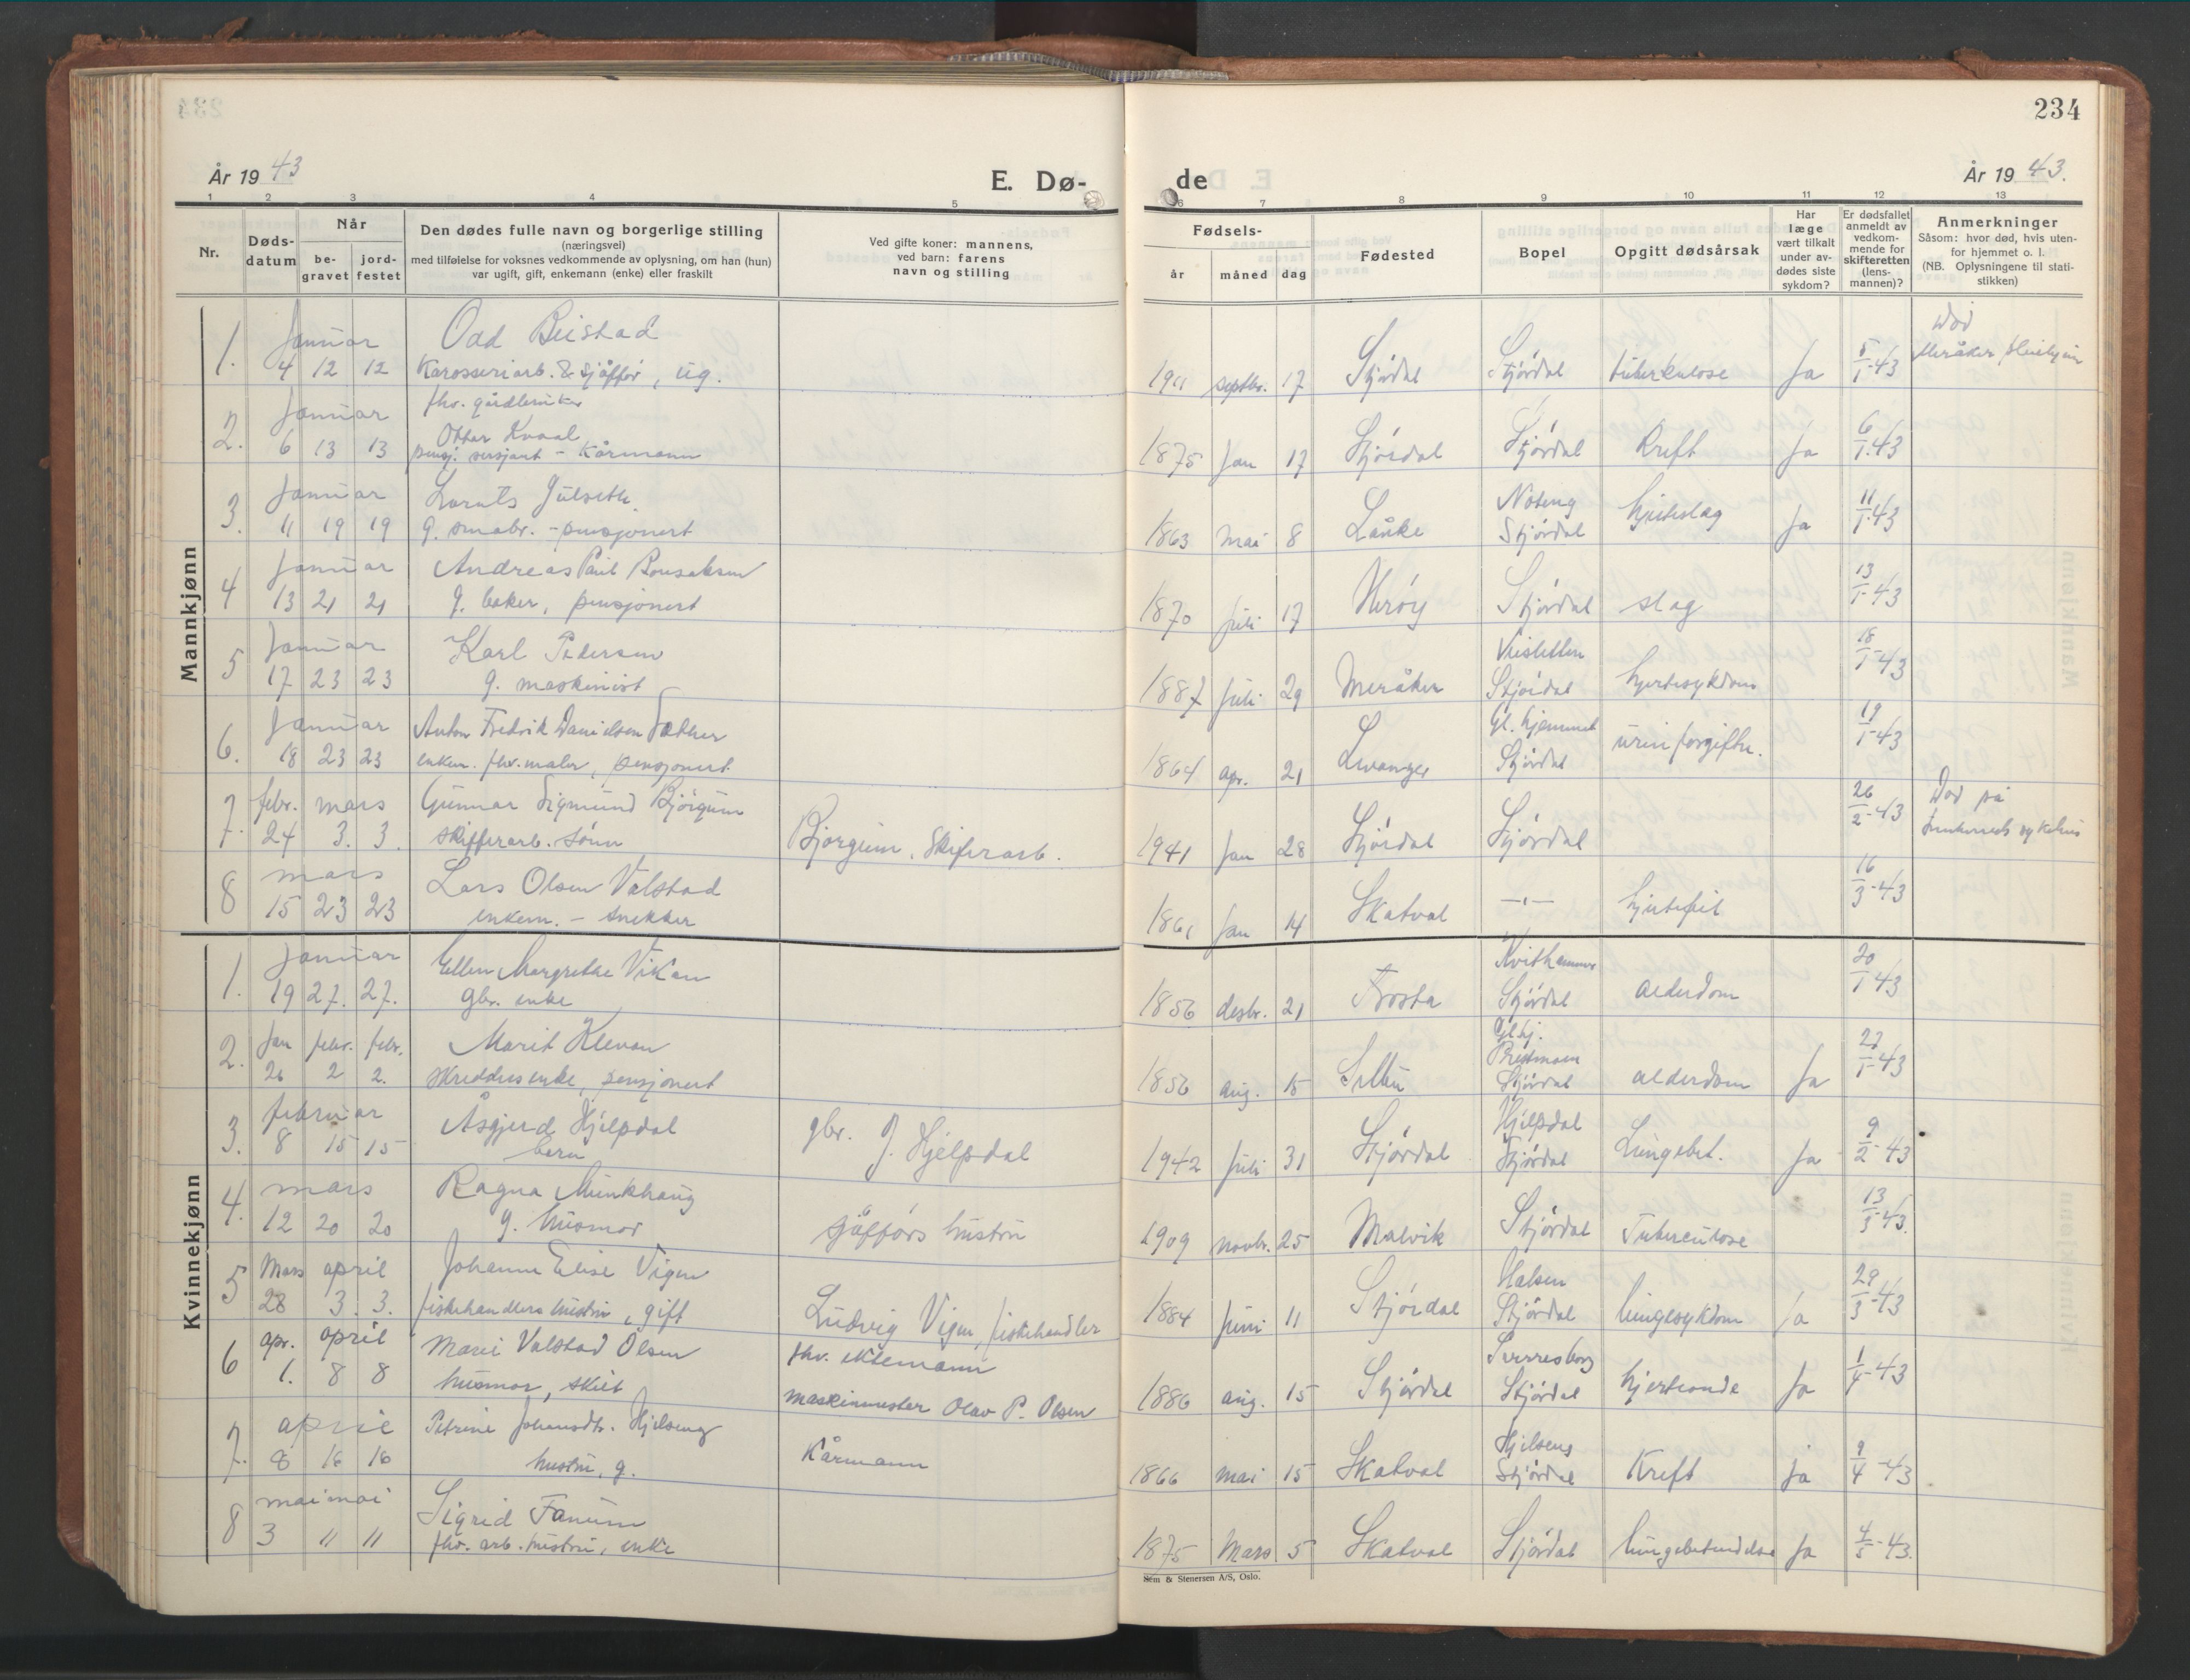 234
År 19 43
E. Dø-
de
År 19 43.
1 2 3 4 5 6 7 8 9 10 11 12 13
Nr.
Døds-
datum
Når
be-
gravet
jord-
festet
Den dødes fulle navn og borgerlige stilling
(næringsvei)
med tilføielse for voksnes vedkommende av oplysning, om han (hun)
var ugift, gift, enkemann (enke) eller fraskilt
Ved gifte koner: mannens,
ved barn: farens
navn og stilling
Fødsels-
år måned dag
Fødested
Bopel
Opgitt dødsårsak
Har
læge
vært tilkalt
under av-
dødes siste
sykdom?
Er dødsfallet
anmeldt av
vedkom-
mende for
skifteretten
(lens-
mannen)?
Anmerkninger
Såsom: hvor død, hvis uten-
for hjemmet o. l.
(NB. Oplysningene til stati-
stikken)
Mannkjønn
1. Januar 4 12 12
Odd Beistad
Karosseriarb. & sjåffør, ug.
1911 septbr. 17 Stjórdal Stjórdal tuberkulose Ja 5/1-43
Død
Meråker
2. Januar 6 13 13
fhv. gårdbruker
Ottar Kvaal
pensj. sersjant - Kårmann
1875 Jan 17 Stjórdal Stjórdal Kreft Ja 6/1-43
3. Januar 11 19 19
Lorents Julseth.
g. smabr. - pensjonert
1863 Mai 8 Lånke Stjórdal hjerteslag Ja 11/1-43
4 Januar 13 21 21
Andreas Paul Bonsaksen
g. baker, pensjonert
1870 Juli 17 Herøy Stjórdal slag 13/1-43
5 Januar 17 23 23
Karl Pedersen
g. maskinist
1887 Juli 29 Meråker Vikisletten Stjórdal hjertesykdom 18/1-43
6. Januar 18 23 23
Anton Fredrik Danielsen Sæther
enkem. fhv. maler, pensjonert.
1864 apr. 21 Levanger Gl. hjemmet Stjórdal urinforgiftn. 19/1-43
7. febr. mars 24 3. 3.
Gunnar Sigmund Bjórgum
skifferarb. sónn
Bjorgum, Skiferarb.
1941 Jan 28 Stjórdal Stjórdal 26/2-43
Død på
Innherreds sykehus
8 mars 15 23 23
Lars Olsen Valstad
enkem. - snekker
1861 Jan 14 Skatval -"- hjertefeil 16/3-43
Kvinnekjønn
1. Januar 19 27. 27.
Ellen Margrethe Vikan
gbr. enke
1856 desbr. 21 Frosta Kvithammer Stjórdal alderdom 20/1 43
2. Jan febr. febr. 26 2 2.
Marit Klevan
skreddersenke, pensjonert
1856 aug. 15 Selbu Gl.hj. Prestmoen Stjórdal alderdom Ja 27/1-43
3. februar 8 15 15
Åsgjerd Hjelpdal
barn
gbr. J. Hjelpdal
1942 Juli 31 Stjórdal Hjelpdal Stjórdal Lungebet. Ja 9/2-43
4. mars 12 20 20
Ragna Munkhaug
g. husmor
sjåffórs hustru
1909 novbr. 25 Malvik Stjórdal Tuberculose 13/3-43.
5 Mars april 28 3. 3.
Johanne Elise Vigen
fiskehandlers hustru, gift
Ludvig Vigen, fiskehandler
1884 Juni 11 Stjórdal Halsen Stjórdal lungesykdom Ja 29/3-43
6 apr. april 1. 8 8
Marie Valstad Olsen
husmor, skilt
fhv. ektemann
maskinmester Olav P. Olsen
1886 aug. 15 Stjórdal Sverresborg Stjórdal hjerteonde Ja 1/4-43
7. april 8 16 16
Petrine Johansdtr. Hjelseng
hustru, g.
Kårmann
1866 mai 15 Skatval Hjelseng Stjórdal Kreft ja 9/4-43
8 mai mai 3 11 11
Sigrid Fanum
fhv. arb. hustru, enke
1875 Mars 5 Skatval Stjórdal lungebetendelse Ja 4/5-43.
Sem & Stenersen A/S, Oslo.